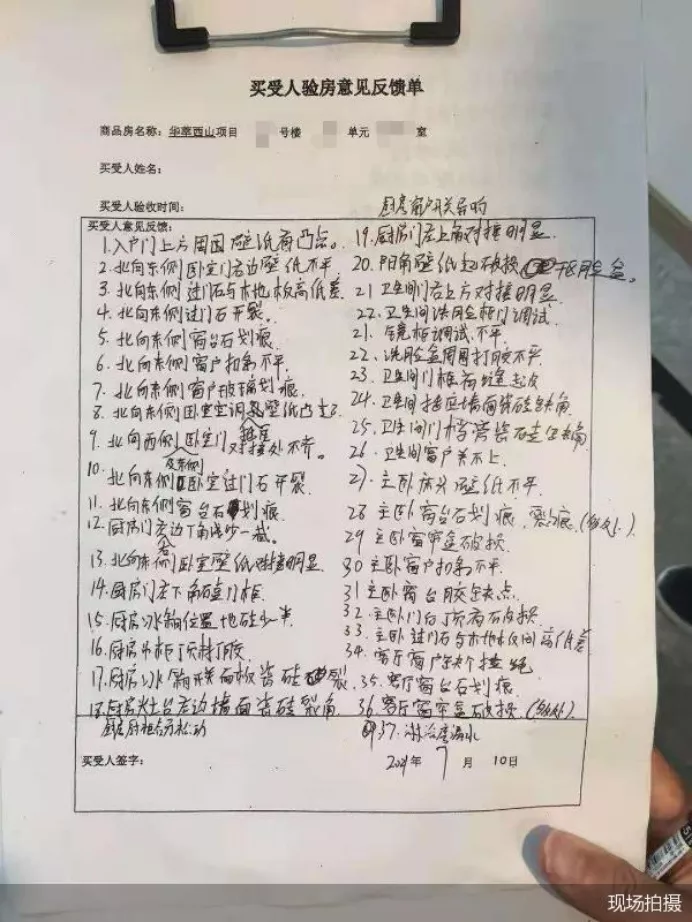 买受人验房意见反馈单
商品房名称：华萃西山项目 号楼 单元 室
买受人姓名：
买受人验收时间：
厨房窗户开关异响
买受人意见反馈：
1.入户门上方周围壁纸有凸点。
2.北向东侧卧室门右边壁纸不平
3.北向东侧过门石与木地板高低差
4.北向东侧过门石开裂。
5.北向东侧窗台石划痕
6.北向东侧窗户扣条不平
7.北向东侧窗户玻璃划痕
8.北向东侧卧室空调 壁纸凸
9.北向西侧卧室门 对接处不齐。
10.北向东侧卧室过门石开裂
11.北向东侧窗台石划痕
12.厨房门左边下角 少一截。
13.北向 侧卧室壁纸对接明显
14.厨房门左下角 门框
15.厨房冰箱位置地砖少半
16.厨房吊柜顶封胶
17.厨房冰箱 面板瓷砖 裂
18.厨房灶台左边墙面瓷砖裂角
厨房厨柜 松动
19.厨房门左上角对接明显
20.阳角壁纸 破损
21卫生间门右上方对接明显
22.卫生间洗脸盆柜门调试
21.镜柜调试.不平
22.洗脸盆周围打胶不平
23.卫生间门框有缝
24.卫生间 墙面瓷砖缺角
25.卫生间门 瓷砖缺角
26.卫生间窗户关不上
27.主卧床头壁纸不平
28主卧窗台石划痕，裂痕
29主卧窗帘盒破损
30主卧窗户扣条不平
31主卧窗台胶缺点
32.主卧门 石破损
33.主卧过门石与木地板间高低差
34.客厅窗户缺个
35.客厅窗台石划痕
36.客厅窗帘盒破损
37.淋浴 漏水
买受人签字：
2021年 7 月 10日
现场拍摄